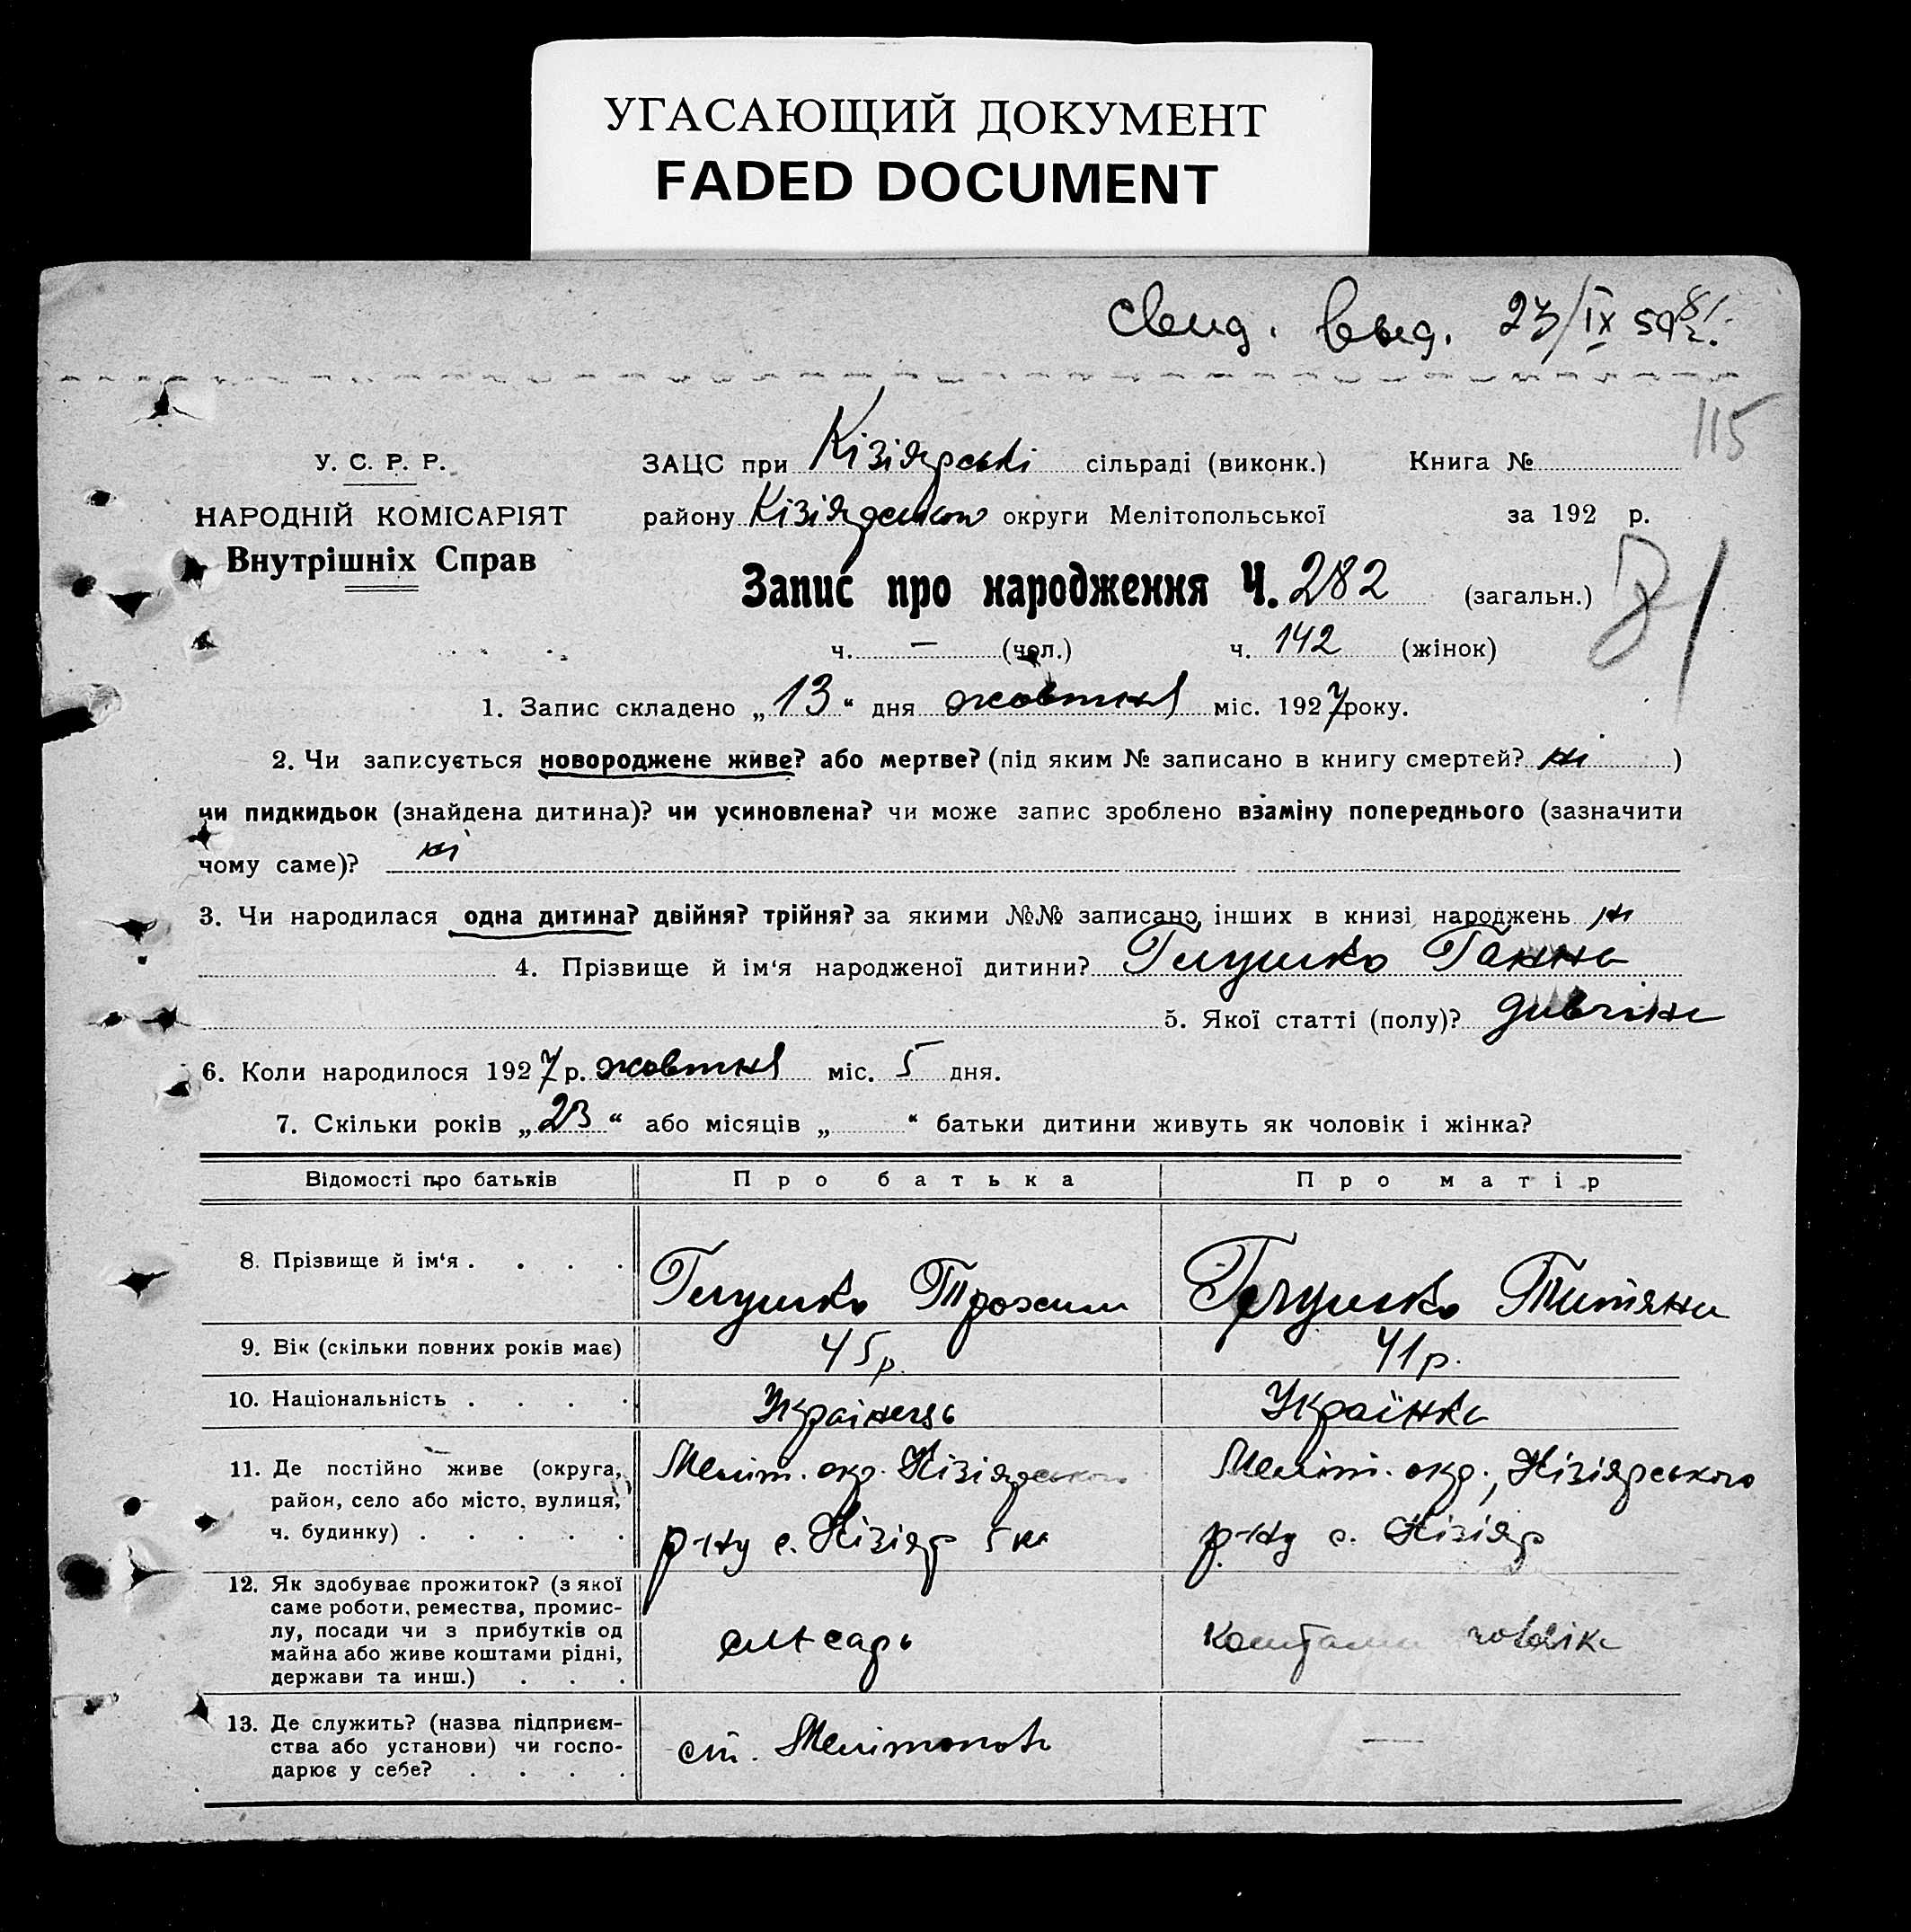 УГАСАЮЩИЙ ДОКУМЕНТ
FADED DOCUMENT
свид. выд. 23/IX 59
115
У. С. Р. Р.
ЗАЦС при Кізіярські сільраді (виконк.) Книга №
НАРОДНІЙ КОМІСАРІЯТ
району Кізіярськом округи Мелітопольської за 192 р.
Внутрішніх Справ
Запис про народження Ч. 282 (загальн.)
81
ч. — (чол.) ч. 142 (жінок)
1. Запис складено „13“ дня жовтня міс. 1927 року.
2. Чи записується новороджене живе? або мертве? (під яким № записано в книгу смертей? ні )
чи пидкидьок (знайдена дитина)? чи усиновлена? чи може запис зроблено взаміну попереднього (зазначити
чому саме)? ні
3. Чи народилася одна дитина? двійня? трійня? за якими №№ записано інших в книзі народжень ні
4. Прізвище й ім‘я народженої дитини? Глушко Ганна
5. Якої статті (полу)? дивчіна
6. Коли народилося 1927 р. жовтня міс. 5 дня.
7. Скільки років „23“ або місяців „ “ батьки дитини живуть як чоловік і жінка?
Відомості про батьків Про батька Про матір
8. Прізвище й ім‘я . . . . Глушко Трохим Глушко Титяна
9. Вік (скільки повних років має) 45р. 41р.
10. Національність . . . . Українець Українка
11. Де постійно живе (округа, Меліт. окр. Кізіярського Меліт. окр., Кізіярського
район, село або місто, вулиця,
ч. будинку) . . . . . р-ну с. Кізіяр р-ну с. Кізіяр
12. Як здобуває прожиток? (з якої
саме роботи, ремества, промис-
лу, посади чи з прибутків од слюсарь коштами чоловіка
майна або живе коштами рідні,
держави та инш.) . . .
13. Де служить? (назва підприєм-
ства або установи) чи госпо- ст. Мелітополь —
дарює у себе? . . . .